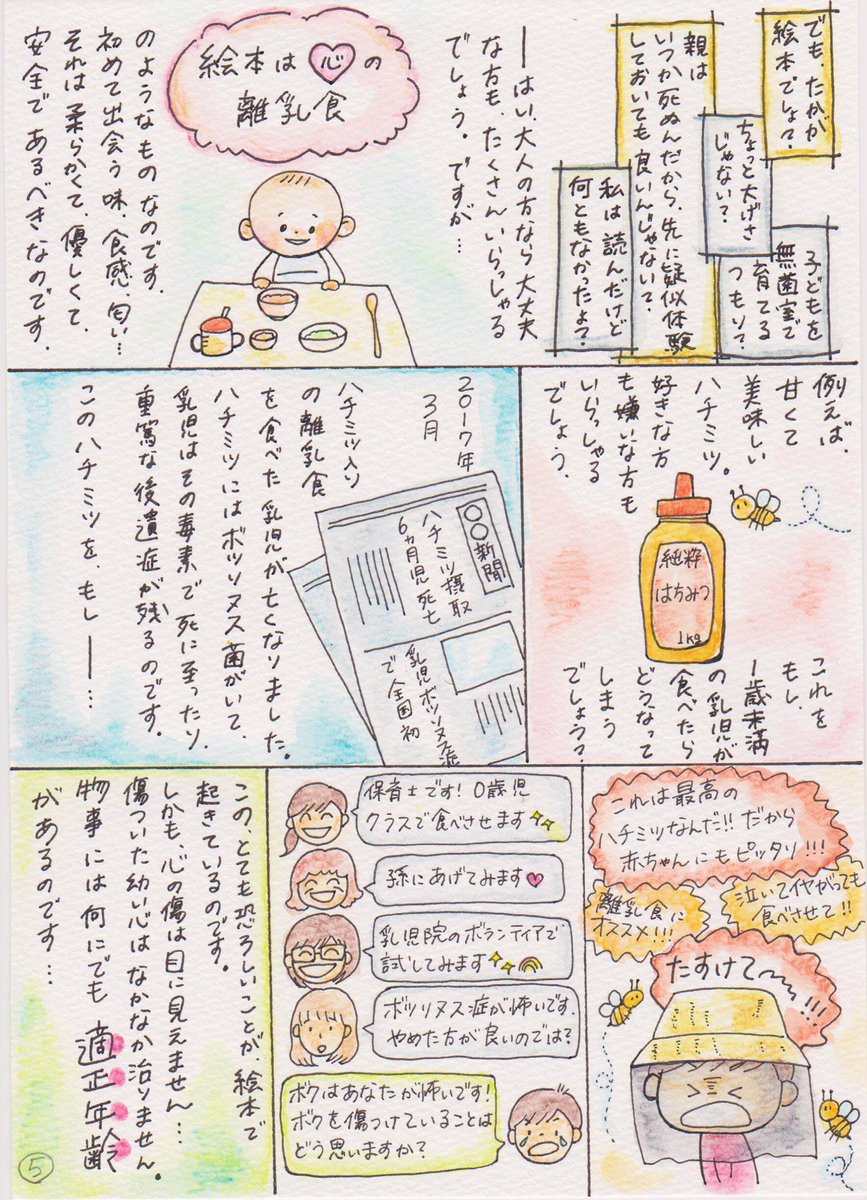 でも、たかが
絵本でしょ？
ちょっと大げさ
じゃない？
子どもを
無菌室で
育てる
つもり？
親は
いつか死ぬんだから、先に疑似体験
しておいても良いんじゃないて？
私は読んだけど
何ともなかったよ？
―はい、大人の方なら大丈夫
な方も、たくさんいらっしゃる
でしょう。ですが…
絵本は心の
離乳食
のようなものなのです。
初めて出会う味、食感、匂い…
それは柔らかくて、優しくて、
安全であるべきなのです。
例えば、
甘くて
美味しい
ハチミツ。
好きな方
も嫌いな方も
いらっしゃる
でしょう。
純粋
はちみつ
1kg
これを
もし、
1歳未満
の乳児が
食べたら
どうなって
しまう
でしょう？
2017年
3月
ハチミツ入り
の離乳食
を食べた乳児が亡くなりました。
ハチミツにはボツリヌス菌がいて、
乳児はその毒素で死に至ったり、
重篤な後遺症が残るのです。
このハチミツを、もし―…
〇〇新聞
ハチミツ摂取
6ヵ月児死亡
乳児ボツリヌス症
で全国初
これは最高の
ハチミツなんだ!!だから
赤ちゃんにもピッタリ!!!
離乳食に
オススメ!!!
泣いてイヤがっても
食べさせて!!
たすけて〜〜!!!
保育士です！0歳児
クラスで食べさせます
孫にあげてみます
乳児院のボランティアで
試してみます
ボツリヌス症が怖いです。
やめた方が良いのでは？
ボクはあなたが怖いです！
ボクを傷つけていることは
どう思いますか？
この、とても恐ろしいことが絵本で
起きているのです。
しかも、心の傷は目に見えません…
傷ついた幼い心はなかなか治りません。
物事には何にでも適正年齢
があるのです…
5